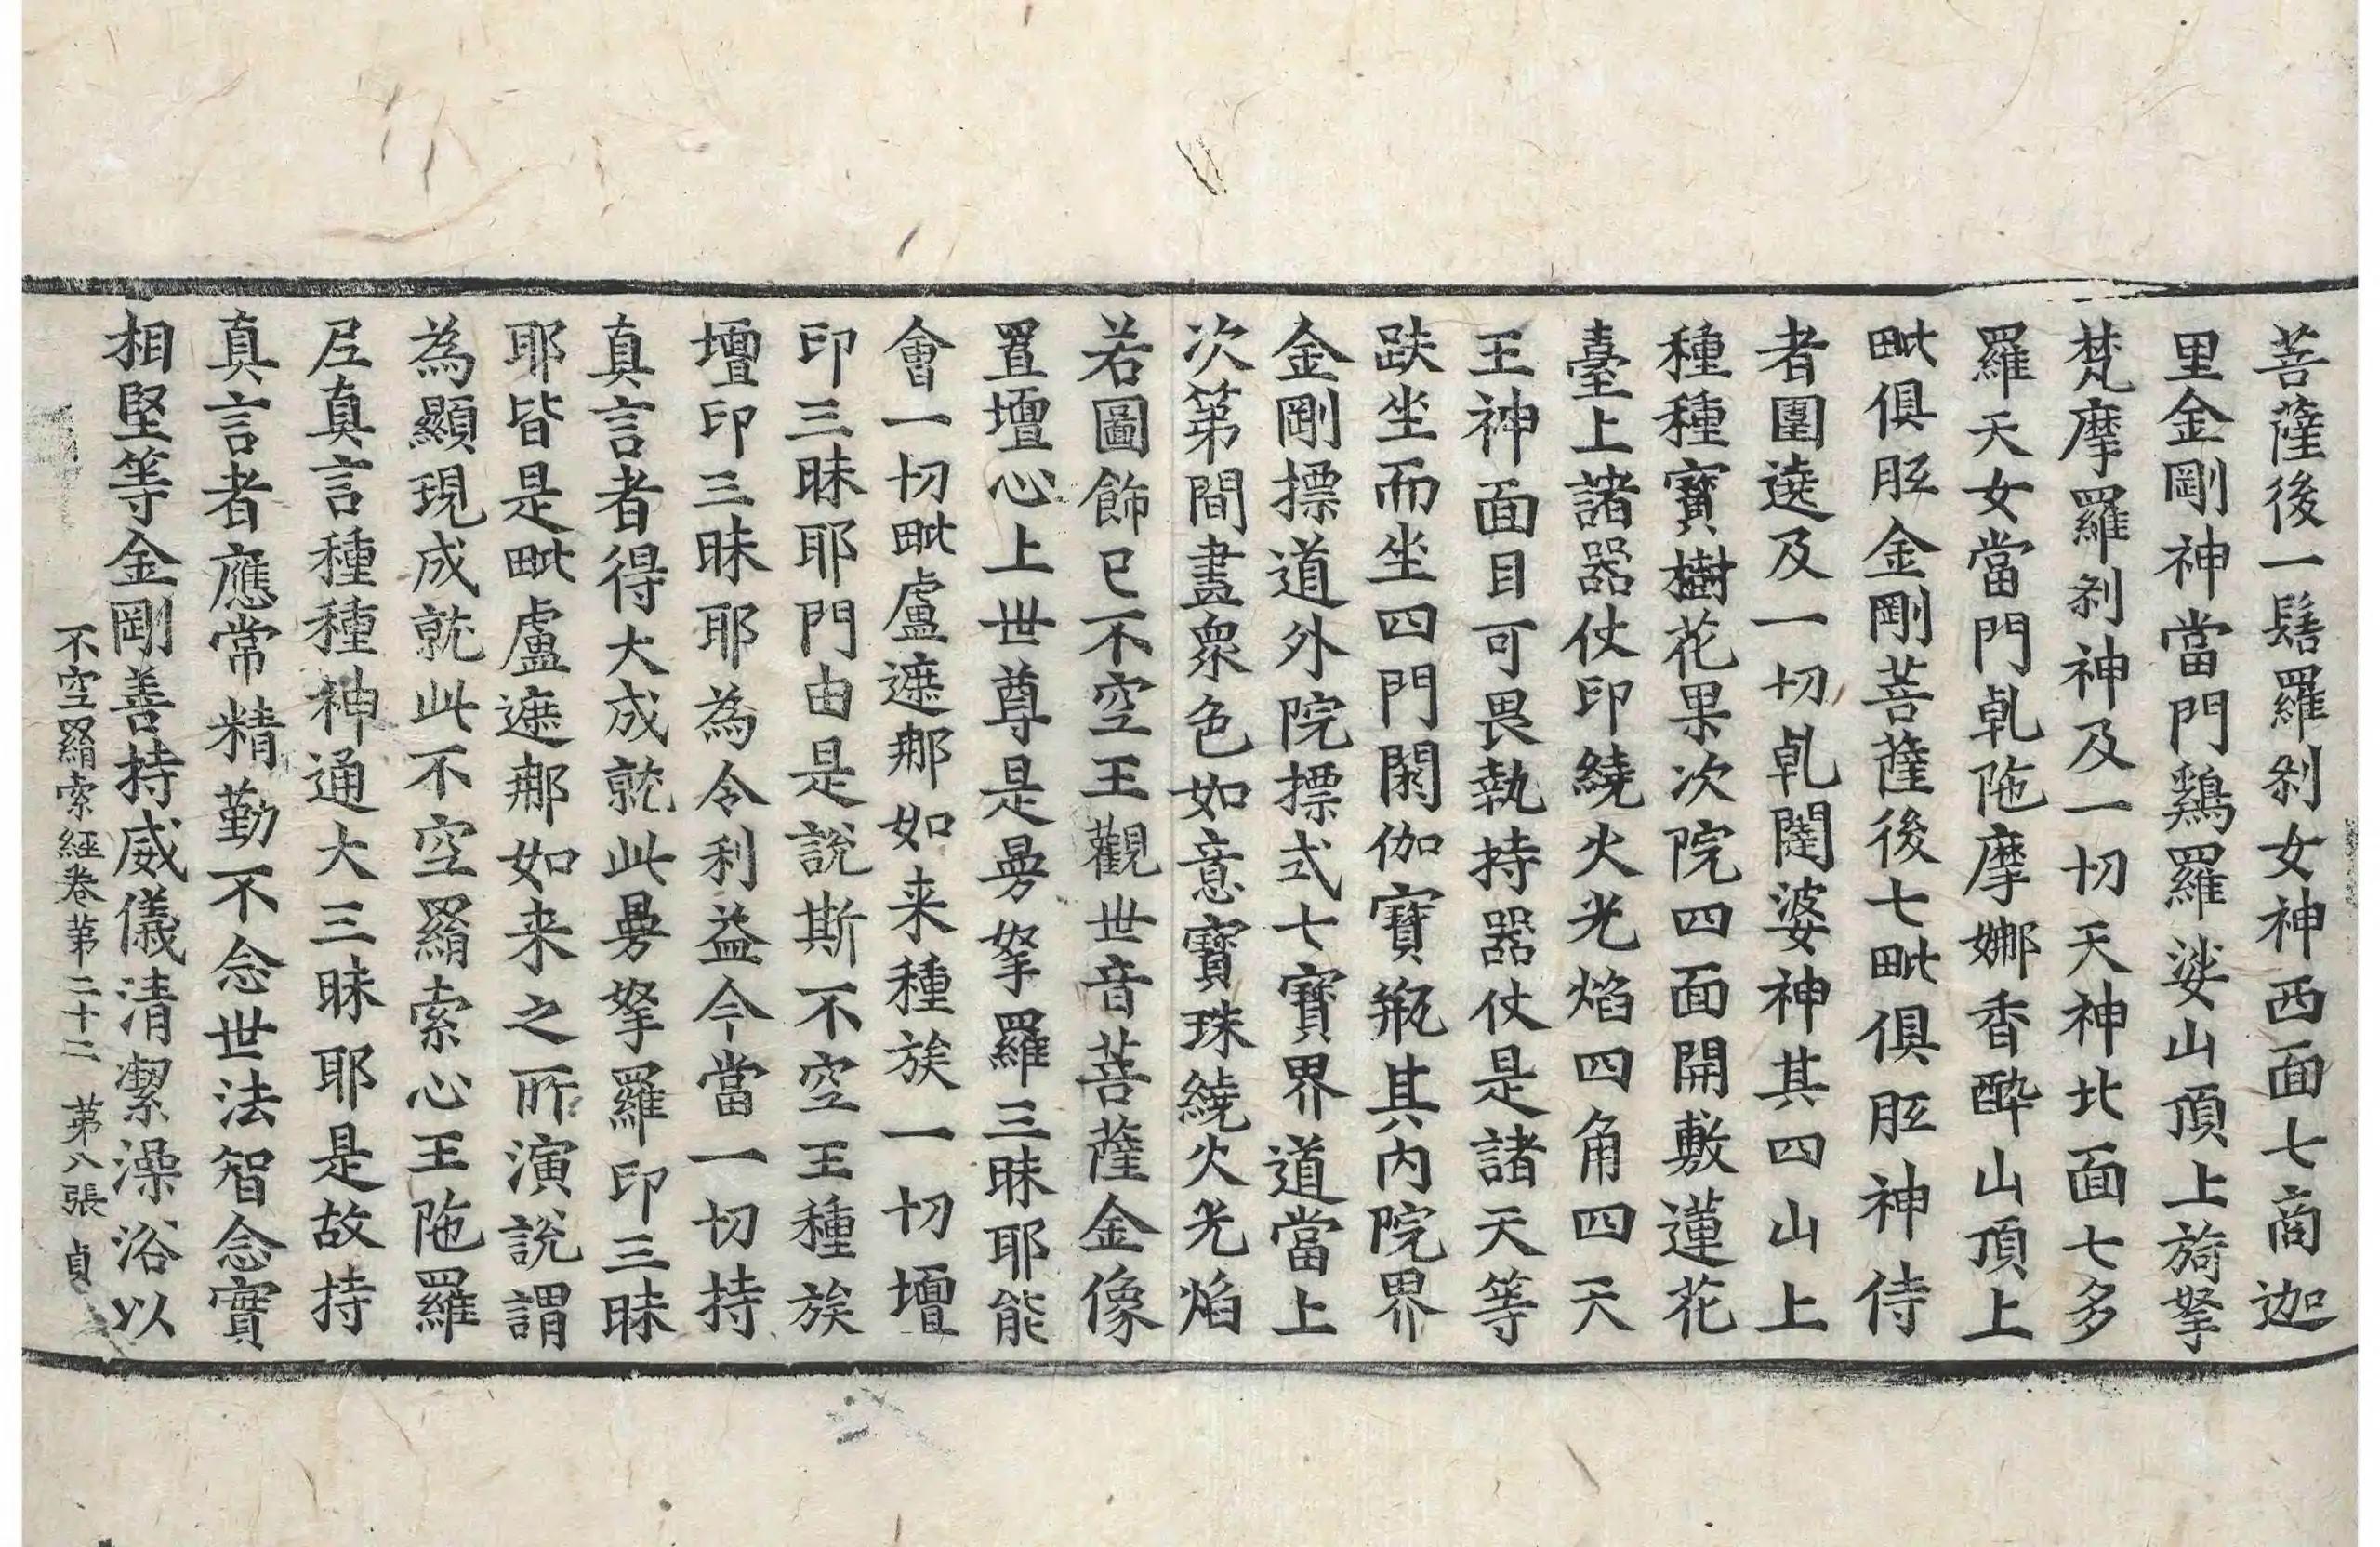 菩薩後一髻羅刹女神西面七商迦
里金剛神當門鷄羅娑山頂上旖拏
梵摩羅刹神及一切天神北面七多
羅天女當門乹陁摩娜香醉山頂上
毗俱胝金剛菩薩後七毗俱胝神侍
者圍遶及一切乹闥婆神其四山上
種種寶樹花果次院四面開敷蓮花
臺上諸器仗印繞火光焰四角四天
王神面目可畏執持器仗是諸天等
趺坐而坐四門閼伽寶瓶其內院界
金剛摽道外院摽式七寶界道當上
次第間畫衆色如意寶珠繞火光焰
若圖飾已不空王觀世音菩薩金像
置壇心上世尊是曼拏羅三昧耶能
會一切毗盧遮那如来種族一切壇
印三昧耶門由是說斯不空王種族
壇印三昧耶為令利益今當一切持
真言者得大成就此曼拏羅印三昧
耶皆是毗盧遮那如来之所演說謂
為顯現成就此不空羂索心王陁羅
尼真言種種神通大三昧耶是故持
真言者應常精勤不念世法智念實
相堅等金剛善持威儀清潔澡浴以
不空羂索經卷第二十二 第八張 貞